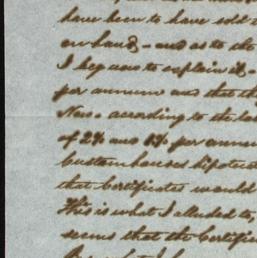 have been to have sold
on hand - and as to the
I beg now to explain it -
per annum and that the
Now according to the la
of 2% and 1% per annum
Customhouses hipotecat
that Certificates would
This is what I alluded to,
seems that the Certific